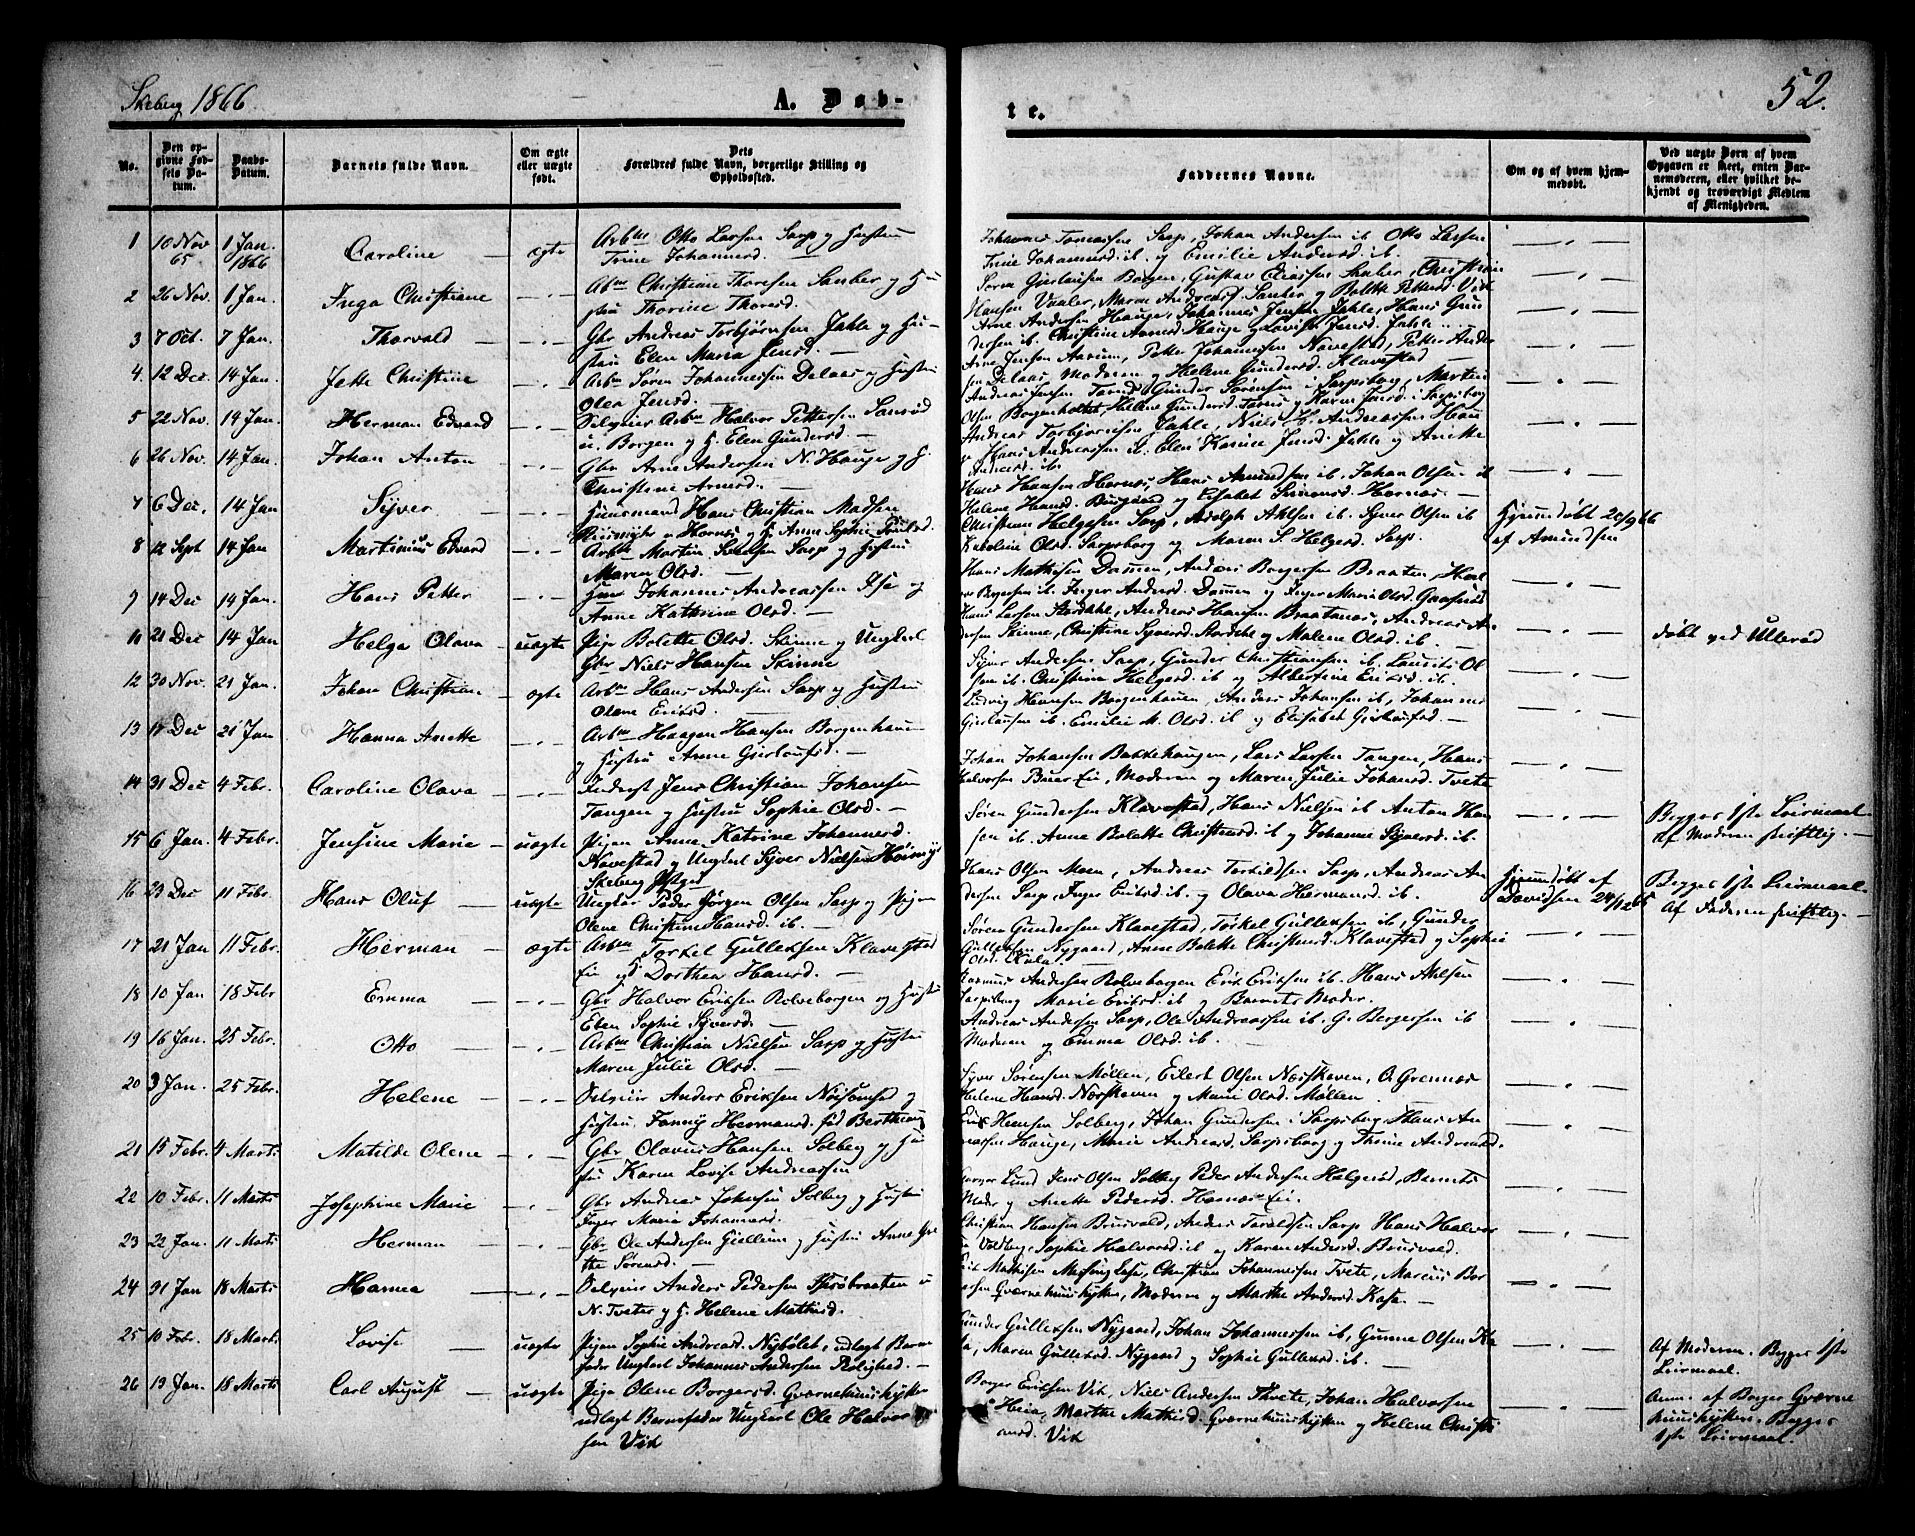 Skeberg 1866.
A. Døb-
te.
52.
No.
Den op-
givne Fød-
sels Da-
tum.
Daabs-
Datum.
Barnets fulde Navn.
Om ægte
eller uægte
født.
Dets
Forældres fulde Navn, borgerlige Stilling og
Opholdssted.
Faddernes Navne.
Om og af hvem hjem-
medøbt.
Ved uægte Børn af hvem
Opgaven er skeet, enten Bar-
nemoderen, eller hvilket be-
kjendt og troværdigt Medlem
af Menigheden.
1 10 Nov 65 1 Jan. 1866 Caroline ægte Arbm Otto Larsen Sarp og Hustru
Trine Johannesd.
Johannes Tomassen Sarp, Johan Andersen ib. Otto Larsen
Trine Johannesd. ib. og Emilie Andersd. ib.
2 26 Nov. 1 Jan. Inga Christiane Abm Christian Thoresen Sandber og Hu
stru Thorine Thorsd.
Søren Gierlaugsen Borgen, Gustav Eliassen Sandber, Christian
Hansen Vaaler, Maren Andreasd. Sandber og Bolette Pettersd. Vik
3 7 Oct. 7 Jan. Thorvald Gbr Andreas Torbjørnsen Jahle og Hu-
stru Elen Maria Jensd.
Arne Andersen Hauge, Johannes Jensen Jahle, Hans Gun
dersen ib. Christine Arnesd. Hauge og Lovise Jensd. Jahle
4. 12 Dec. 14 Jan. Jette Christine Arbm Søren Johannessen Delaas og Hustru
Olea Jensd.
Arne Jensen Aarum, Petter Johannesen Navestad, Petter Ander
sen Delaas, Moderen og Helene Gundersd. Klavestad
5 22 Nov. 14 Jan. Herman Edvard Selveier Arbm Halvor Pettersen Sanrød
u. Borgen og H. Elen Gundersd.
Andreas Jensen Tarud, Gunder Sørensen i Sarpsborg, Martin
Olsen Borgenholtet, Helene Gundersd. Tarud og Karen Jensd. i Sarpsborg
6 26 Nov. 14 Jan. Johan Anton Gbr Arne Andersen N. Hauge og H.
Christine Arnesd.
Andreas Torbjørnsen Jahle, Niels H. Andreassen Hau
ge Hans Andreassen ib. Elen Karine Jensd. Jahle og Anette
Andersd. ib.
7 6 Dec. 14 Jan Syver Huusmand Hans Christian Madsen
u Hornes og H. Anne Sophie
Hans Hansen Hornes, Hans Amundsen ib. Johan Olsen ib
Helene Hansd. Buegaard og Elisabet Simensd. Hornes.
8 12 Sept 14 Jan Martinius Edvard Arbm Martin Sørensen Sarp og Hustru
Maren Olsd.
Christian Helgesen Sarp, Adolph Ahlsen ib. Syver Olsen ib
Karoline Olsd. Sarpsborg og Maren S. Helgesd. Sarp.
Hjemdøbt 20/9 66
af Amundsen
9 14 Dec 14 Jan. Hans Petter Huus Johannes Andreassen Ise og
Anne Kathrine Olsd.
Hans Mathisen Dammen, Anders Borgersen Braaten, Hal
vor Borgersen ib. Inger Andersd. Dammen og Inger Marie Olsd. Gaasrød
10 21 Dec 14 Jan Helga Olava uægte Pige Bolette Olsd. Skinne og Ungkarl
Gbr Niels Hansen Skinne
Hans Larsen Stordahl, Andreas Hansen Braatenes, Andreas An-
dersen Skinne, Christine Syversd. Stordahl og Malene Olsd. ib.
døbt ved Ullerød
12 30 Nov. 21 Jan. Johan Christian ægte Arbm Hans Andersen Sarp og Hustru
Olene Eriksd.
Syver Andersen Sarp, Gunder Christiansen ib. Laurits Ol
sen ib. Christine Helgesd. ib og Albertine Eriksd. ib.
13 17 Dec 21 Jan Hanna Anette Arbm Haagen Hansen Borgenhaun
og Hustru Anne Gjerlaufsd.
Ludvig Hansen Borgenhauen, Anders Johansen ib, Johannes
Gierlaufsen ib. Emilie M. Olsd. ib og Elisabet Gjerlaufsd.
14 31 Dec 4 Febr. Caroline Olava Inderst Jens Christian Johansen
Tangen og Hustru Sophie Olsd.
Johan Johansen Bakkehaugen, Lars Larsen Tangen, Hans
Halvorsen Buer Eie, Moderen og Maren Julie Johansd. Tvete
15 6 Jan. 4 Febr. Jensine Marie uægte Pigen Anne Katrine Johannesd.
Navestad og Ungkarl Syver Nielsen
Skeberg Pstgd
Søren Gundersen Klavestad, Hans Nielsen ib Anton Han
sen ib. Anne Bolette Christensd. ib og Johanne Syversd. ib.
Begges 1ste Leiermaal
Af Moderen skriftlig.
16 23 Dec 11 Febr. Hans Oluf uægte Ungkar Peder Jørgen Olsen Sarp og Pigen
Olene Christine Hansd. ib.
Hans Olsen Moen, Andreas Torkildsen Sarp, Andreas An
dersen Sarp, Inger Eriksd. ib. og Olava Hermansd. ib.
Hjemdøbt af
Davidsen 24/12 65
Begges 1ste Leiermaal
Af Faderen skriftlig.
17 21 Jan 11 Febr. Herman ægte Arbm Torkel Gulleksen Klavestad
Eie og H. Dorthea Hansd.
Søren Gundersen Klavestad, Torkel Gulleksen ib, Gunder
Gulleksen Nygaard, Anne Bolette Christensd. Klavestad og Sophie
Olsd. Kula.
18 10 Jan 18 Febr Emma Gbr Halvor Eriksen Rolveborgen og Hustru
Elen Sophie Syversd.
Rasmus Andersen Rolveborgen Erik Eriksen ib. Hans Ahlsen
Sarpsborg Marie Eriksd. ib og Barnets Moder.
19 16 Jan. 25 Febr. Otto Arbm Christian Nielsen Sarp og Hustru
Maren Julie Olsd.
Andreas Andersen Sarp, Ole Andreassen ib. G. Bergersen ib
Moderen og Emma Olsd. ib.
20 3 Jan. 25 Febr. Helene Selveier Anders Eriksen Noisomhed og
Hustru Fanny Hermansd. fød Berthung
Syver Sørensen Møllen, Eilert Olsen Norskeven, O. Grennes
Helene Hansd. Norskeven og Marie Olsd. Møllen
21 15 Febr. 4 Marts Matilde Olene Gbr Olavus Hansen Solberg og Hu
stru Karen Lovise Andreassen
Erik Hansen Solberg, Johan Gundersen i Sarpsborg, Hans An
dreassen Hauge, Marie Andreasd. Sarpsborg og Trine Andreasd.
22 10 Febr. 11 Marts Josephine Marie Gbr Andreas Johnsen Solberg og Hustru
Inger Maria Johannesd.
Lund Jens Olsen Solberg Peder Andersen Helgerød, Barnets
Moder og Anette Pedersd. Hornes Eie.
23 22 Jan. 11 Marts Herman Gbr Ole Andersen Giellum og Hustru Anne Gre
the Sørensd.
Christian Hansen Bruevold, Anders Taraldsen Sarp Hans Halvor
sen Voldberg, Sophie Halvorsd. ib og Karen Andersd. Bruevold.
24 31 Jan 18 Marts Hanna Selveier Anders Pedersen Thorsbraaten u
N. Tveter og H. Helene Mathisd.
Mathisen Ise, Christian Johannessen Tvete, Marcus Bor
gersen Qværnehuushytten, Moderen og Marthe Andersd. Kasa.
25 10 Febr. 18 Marts. Lovise uægte Pigen Sophie Andreasd. Nybølet, udlagt Barne
fader Ungkarl Johannes Andersen Rolighed.
Gunder Gulleksen Nygaard, Johan Johannessen ib, Gunne Olsen Ku
la, Maren Gulleksd. Nygaard og Sophie Gulleksd. ib.
Af Moderen. Begges 1ste
Leiermaal.
26 19 Jan. 18 Marts Carl August uægte Pige Olene Borgersd. Qværnehuushytten
udlagt Barnefader Ungkarl Ole Halvor
sen Vik
Borger Eriksen Vik, Niels Andersen Thvete, Johan Halvorsen
Heia, Marthe Mathisd. Qværnehuushytten og Helene Christi
ansd. Vik
Anm. af Borger Qværne
huushytten. Begges
1ste Leiermaal.